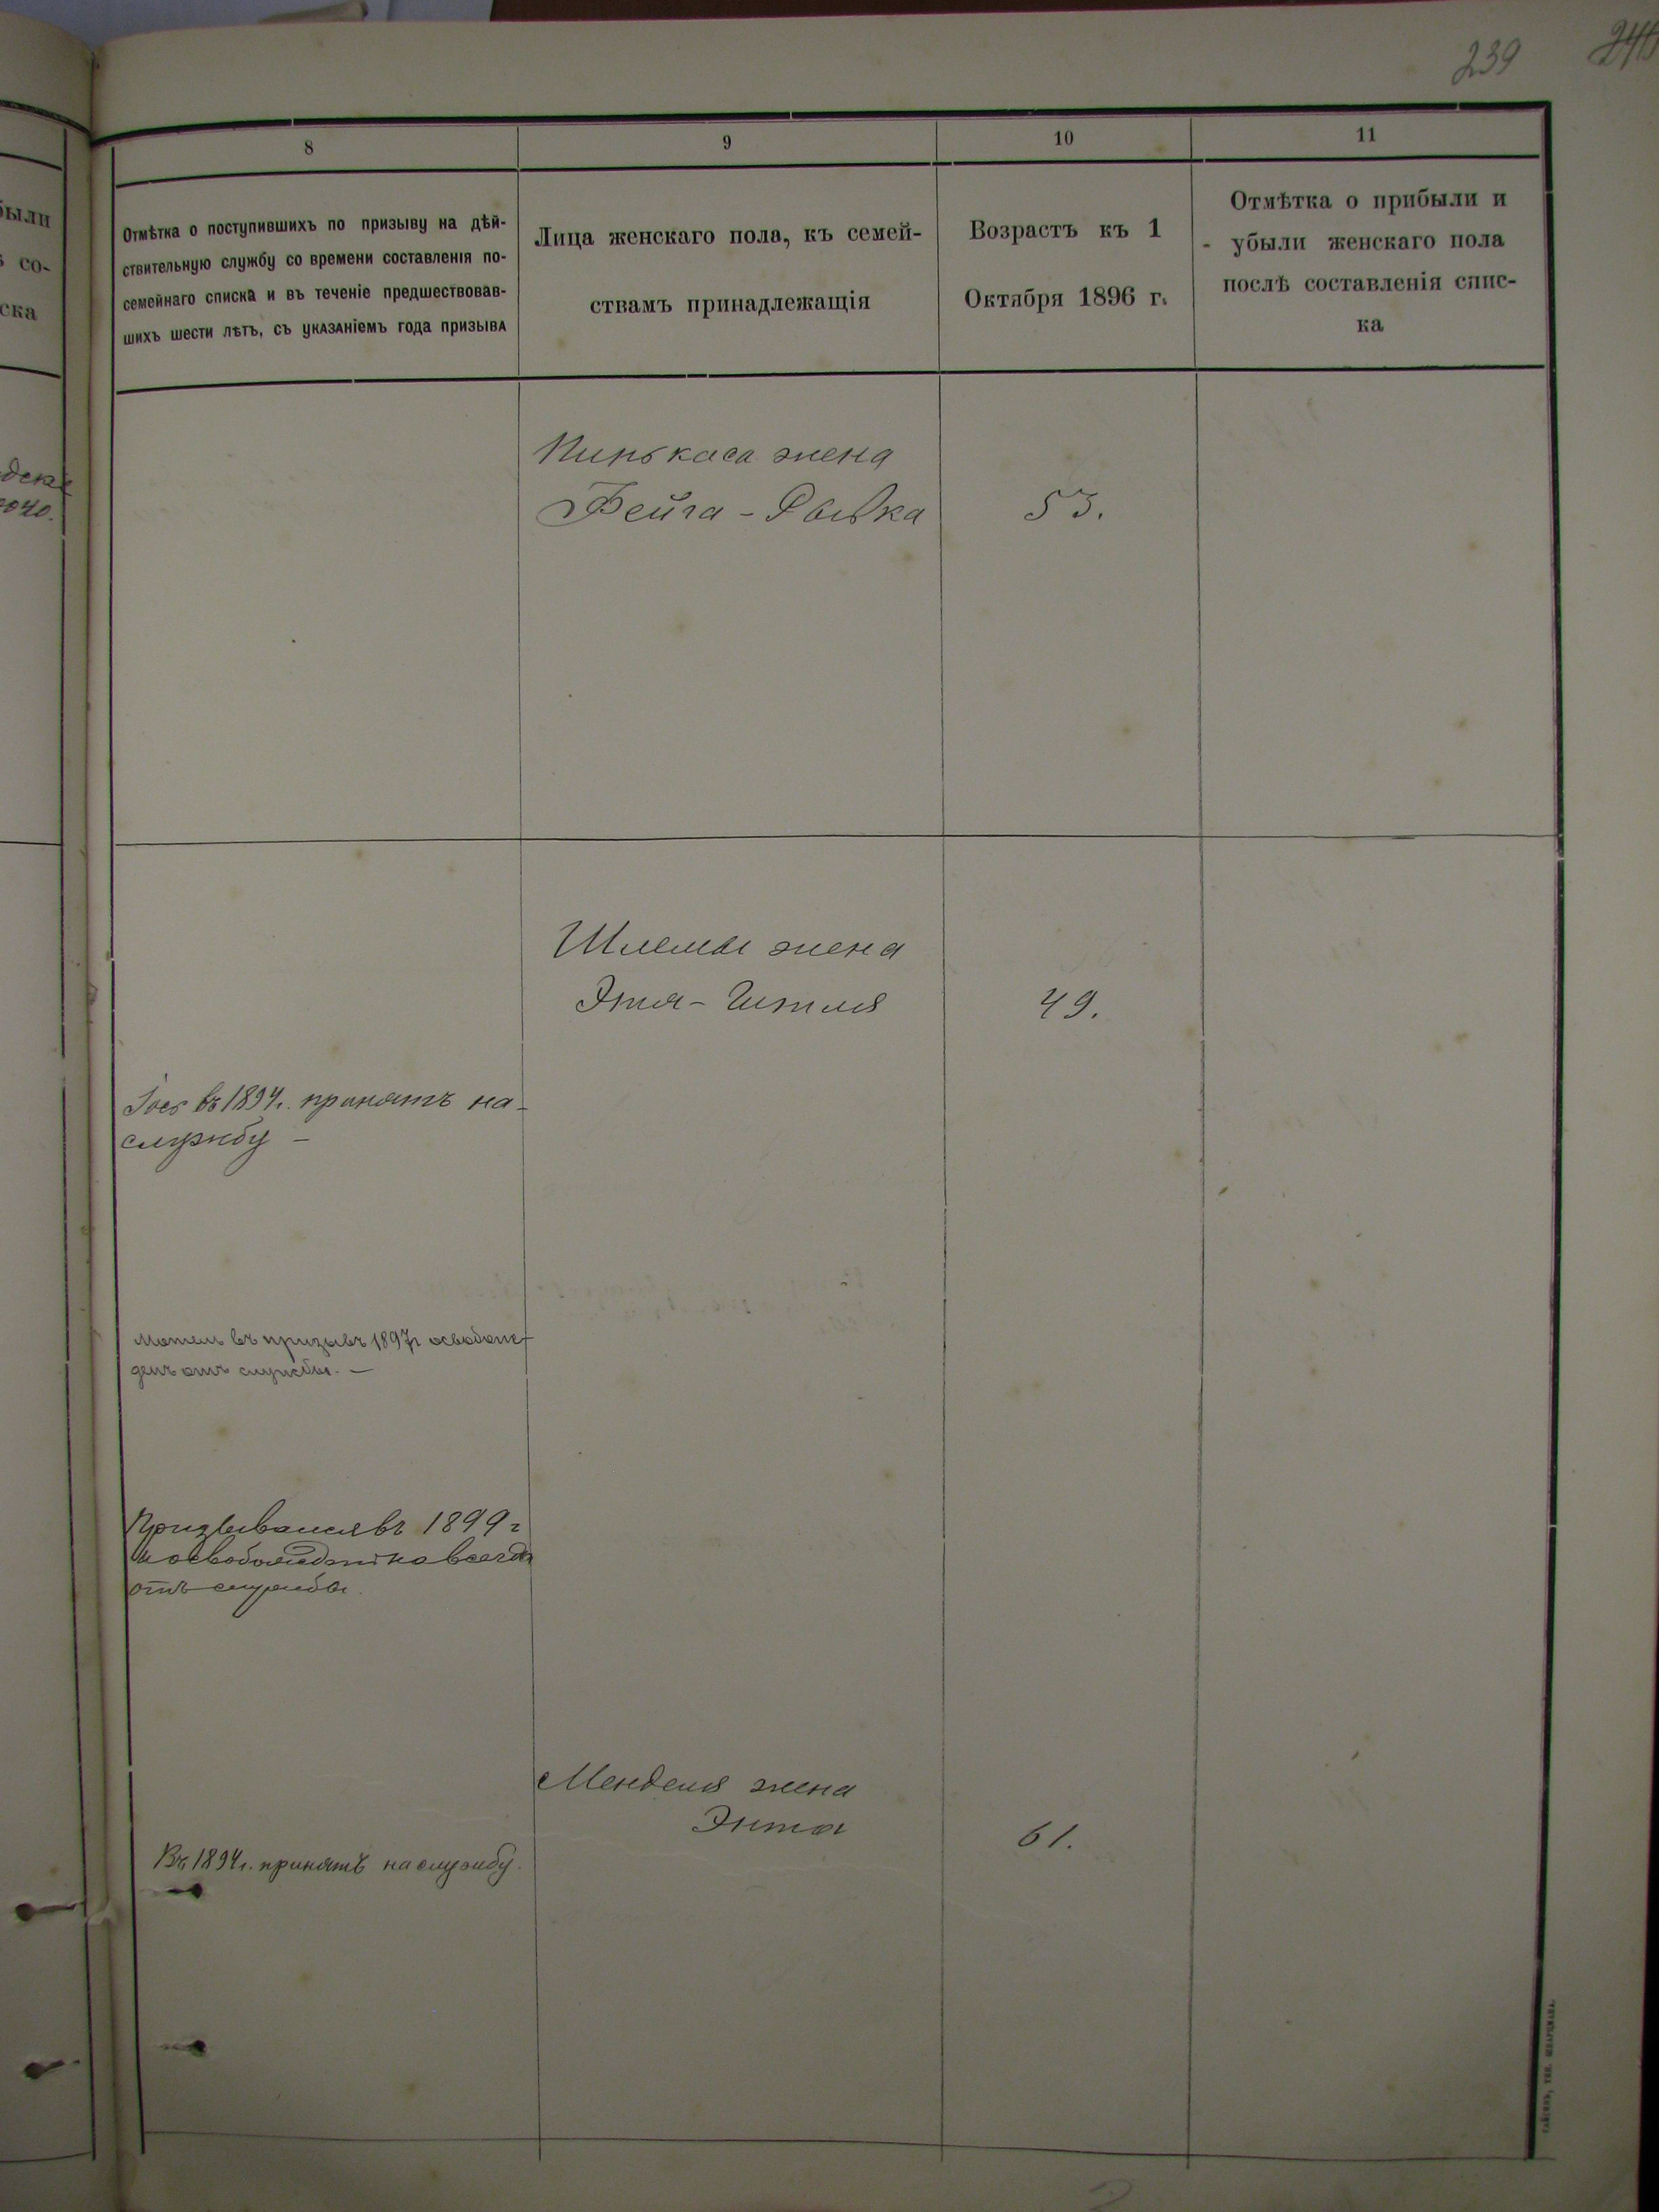 239
240
8
9
10
11
были
со-
ска
Отмѣтка о поступившихъ по призыву на дѣй-
ствительную службу со времени составленія по-
семейнаго списка и въ теченіе предшествовав-
шихъ шести лѣтъ, съ указаніемъ года призыва
Лица женскаго пола, къ семей-
ствамъ принадлежащія
Возрастъ къ 1
Октября 1896 г.
Отмѣтка о прибыли и
убыли женскаго пола
послѣ составленія спис-
ка
Пинькаса жена
Фейга - Рывка
53.
Шлемы жена
Этя - Гитля
49.
Іось въ 1894 г. принятъ на
службу -
Мотель въ призывъ 1897 г освобож
денъ отъ службы. -
Призывался въ 1899 г
и освобожденъ навсегда
отъ службы.
Менделя жена
Энта
61.
Въ 1894 г. принятъ на службу.